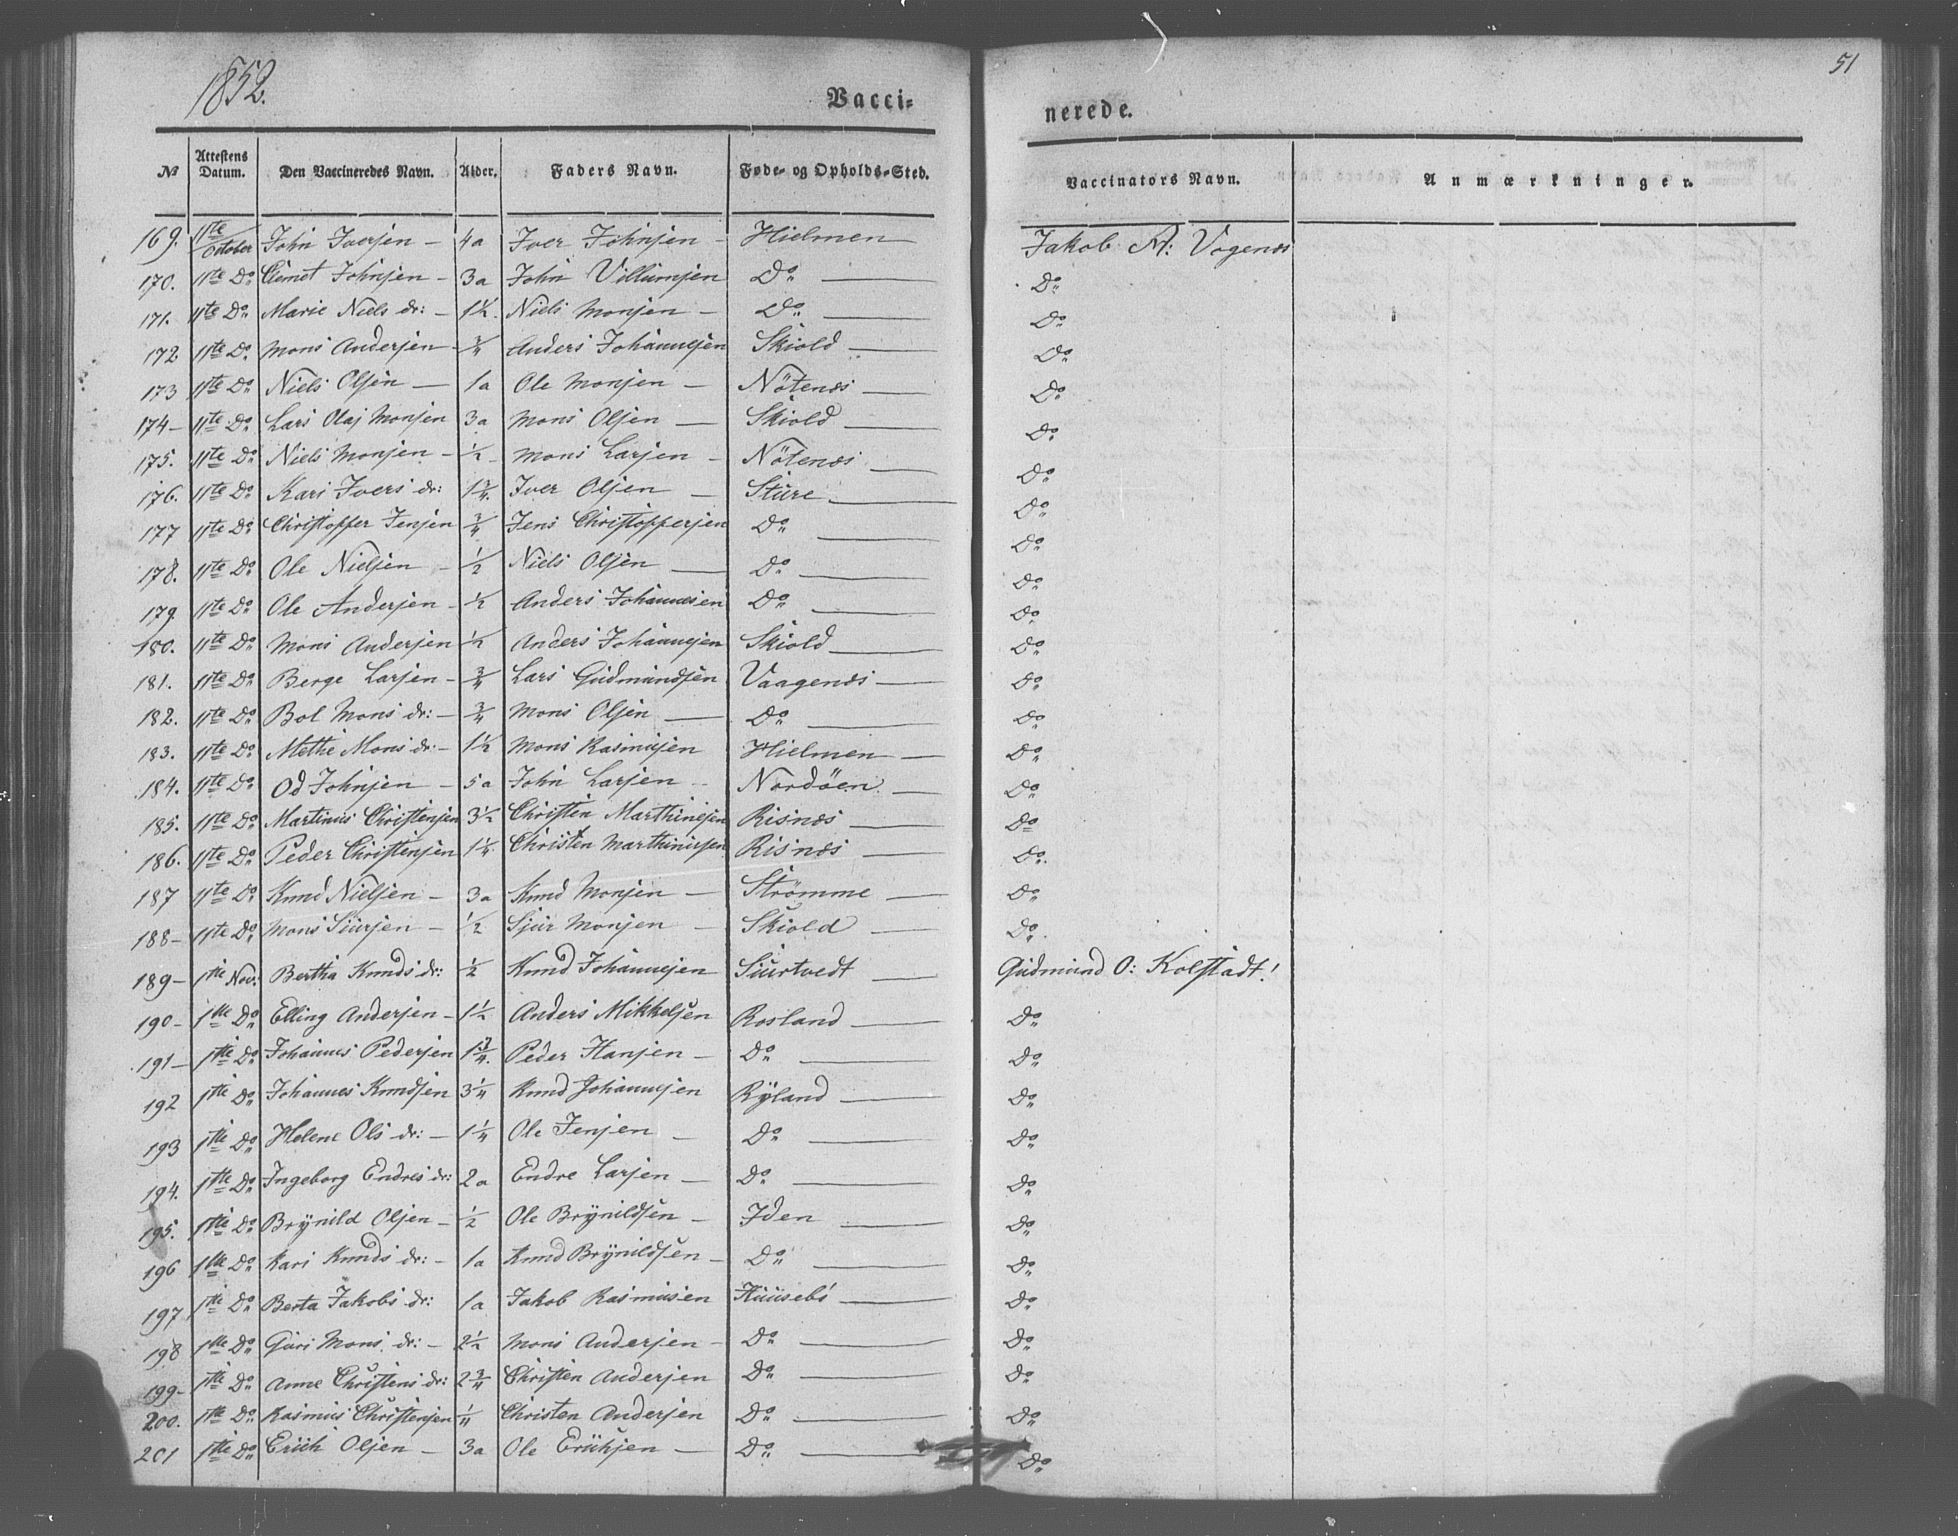 1852.
51
Vacci-
nerede.
№ Attestens Datum. Den Vaccineredes Navn. Alder. Faders Navn. Føde- og Opholds-Sted. Vaccinators Navn. Anmærkninger.
169. 11te October John Iversen - 4a Iver Johnsen - Hielmen Jakob A: Vogenæs
170. 11te Do Johnsen - 3a John Villumsen Do Do
171. 11te Do Marie Niels dr: - 1¼. Niels Monsen - Do Do
172 11te Do Mons Andersen - ¾ Anders Johannesen Skiold Do
173 11te Do Niels Olsen - 1a Ole Monsen - Nötenæs Do
174- 11te Do Lars Olaj Monsen 3a Mons Olsen - Skiold Do
175. 11te Do Niels Monsen - ½ Mons Larsen - Nötenæs Do
176. 11te Do Kari Ivers dr: 1¾. Iver Olsen - Sture Do
177 11te Do Christopfer Jensen ¾ Jens Christoppersen Do Do
178. 11te Do Ole Nielsen - ½ Niels Olsen - Do Do
179. 11te Do Ole Andersen - ½ Anders Johannesen Do Do
180. 11te Do Mons Andersen ½ Anders Johannesen Skiold Do
181. 11te Do Berge Larsen - ¾ Lars Gudmundsen Vaagenæs Do
182. 11te Do Bol Mons dr: - ¾ Mons Olsen - Do Do
183. 11te Do Methe Mons dr: - 1½ Mons Rasmusen Hielmen - Do
184. 11te Do Od Johnsen - 5a John Larsen - Nordöen. Do
185. 11te Do Martinus Christensen 3½ Christen Marthinesen Risnæs Do
186. 11te Do Peder Christensen 1¼ Christen Marthinusen Risnæs Do.
187 11te Do Knud Nielsen - 3a Knud Monsen - Strömme Do
188- 11te Do Mons Siursen - ½ Sjur Monsen - Skiold Do.
189- 1ste Nov: Bertha Knuds dr: ½ Knud Johannesen Siurtvedt Gudmund O: Kolstadt!
190- 1ste Do Elling Andersen - 1½ Anders Mikkelsen Rosland Do
191- 1ste Do Johannes Pedersen 1¾. Peder Hansen - Do Do
192 1ste Do Johannes Knudsen 3¼ Knud Johannesen Ryland Do
193 1ste Do Helene Ols dr: - 1¼ Ole Jensen - Do Do
194. 1ste Do Ingeborg Endres dr: 2a Endre Larsen - Do Do
195. 1ste Do Brynild Olsen - ½ Ole Brynildsen - Iden Do
196 1ste Do Kari Knuds dr: - 1a Knud Brynildsen - Do Do
197 1ste Do Berta Jakobs dr: 1a Jakob Rasmusen Huusebö Do
198 1ste Do Guri Mons. dr: - 2½ Mons Andersen - Do Do
199- 1ste Do Anne Christens dr: 2¾ Christen Andersen Do Do
200. 1ste Do Rasmus Christensen ¼ Christen Andersen Do Do
201 1ste Do Erich Olsen - 3a Ole Erichsen - Do Do